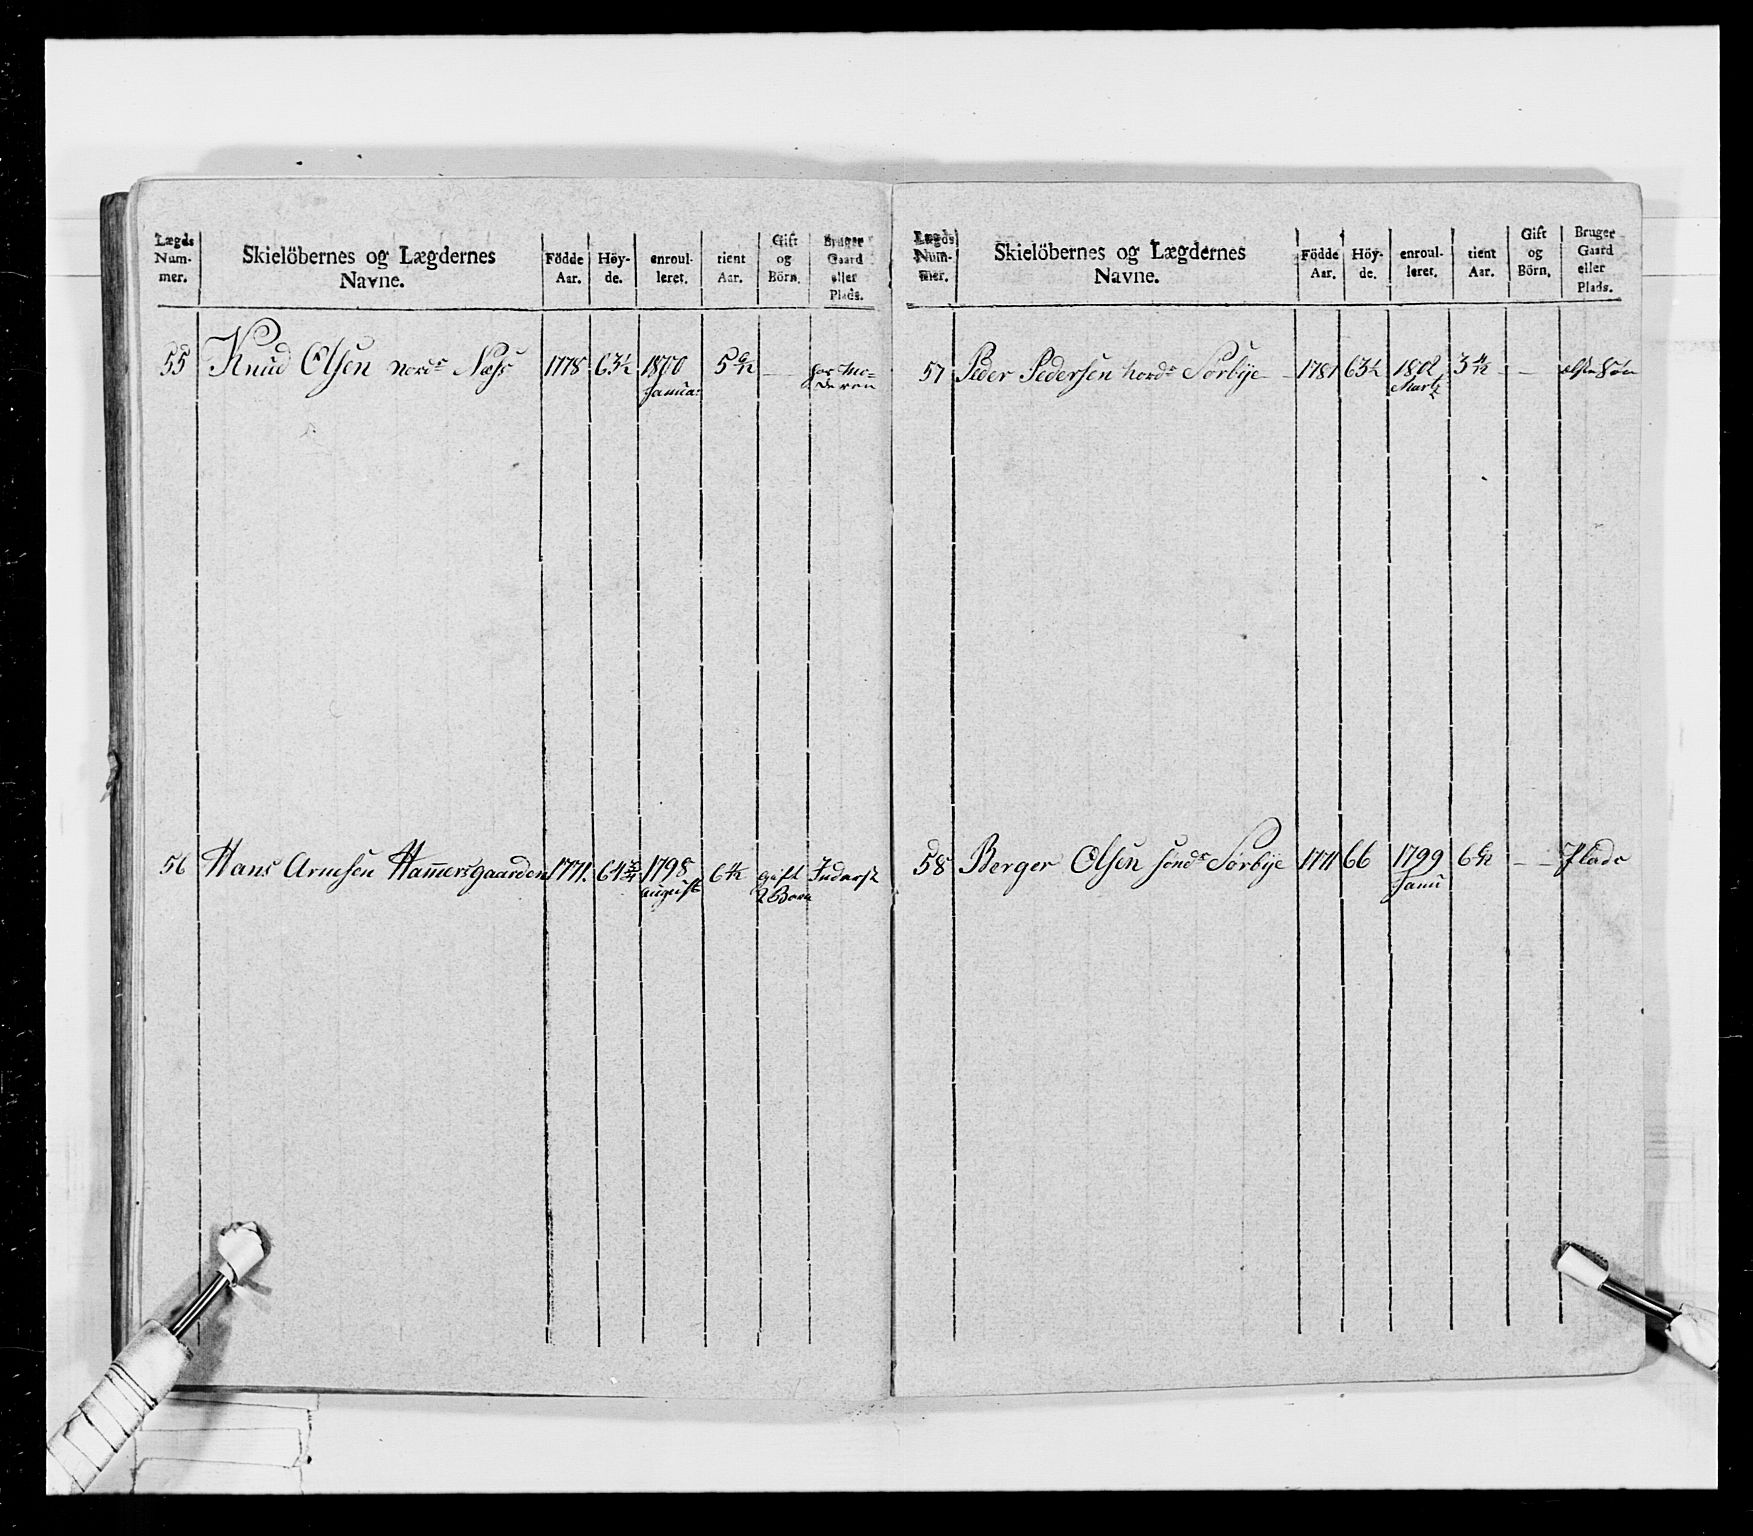 Lægds Num- mer. Skielöbernes og Lægdernes Navne. Födde Aar. Höy- de. enroul- leret. tient Aar. Gift og Börn. Bruger Gaard eller Plads.
55 Knud Olsen Nord: Næss 1778 63½ 1800 5 — hos Mo-
Janua: deren
56 Hans Arnesen Hammersgaarden 1771. 64¾ 1798 6 gift Inderst
august 2 Børn
Lægds Num- mer. Skielöbernes og Lægdernes Navne. Födde Aar. Höy- de. enroul- leret. tient Aar. Gift og Börn. Bruger Gaard eller Plads.
57 Peder Pedersen Nord: Sørbye 1781 63½ 1802 3 —
Martz
58 Berger Olsen Sønd: Sørbye 1771 66 1799 6 — Plads
Janu